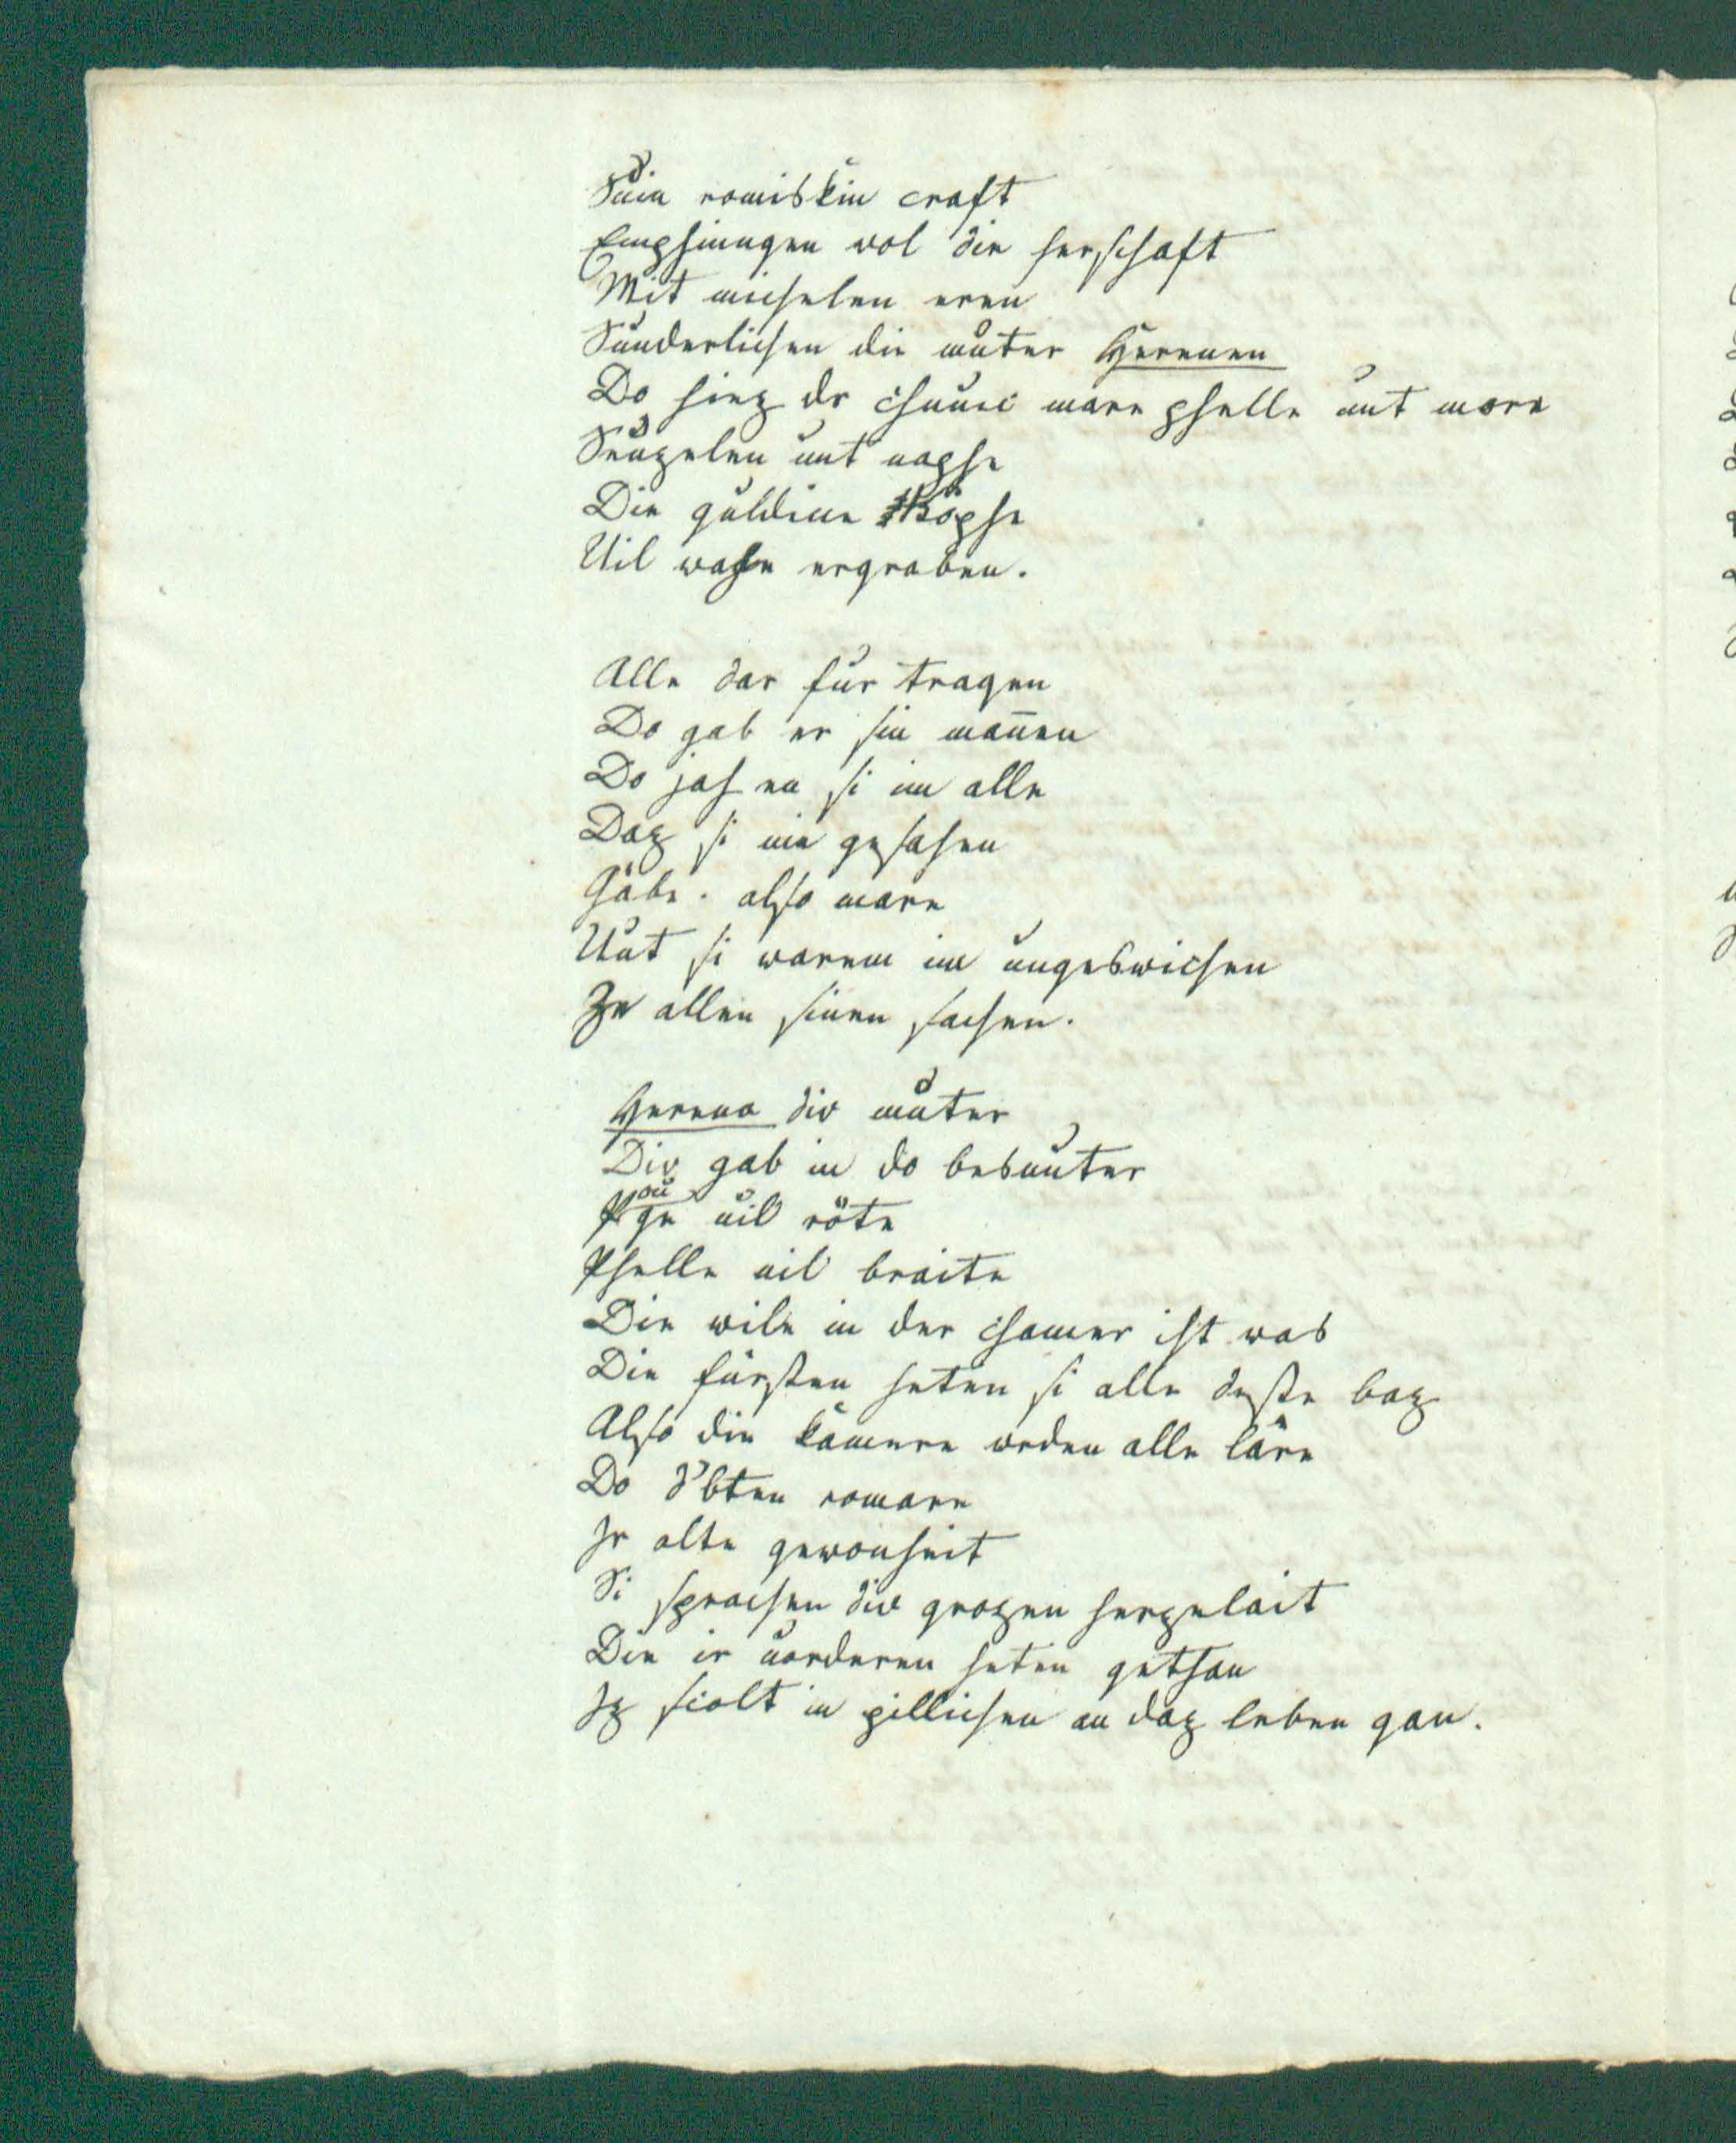 Duͤin romiskiu craft
Emphiungen wol die herschaft
Mit michelen eren
Sunderlichen die muͦter Herenen
Do hiez dr chunic mare phelle unt more
Senzelen unt naphe
Die guldine Köphe
Uil wahe ergraben.
Alle dar fur tragen
Do gab er sin man̄en
Do jahen si im alle
Daz si nie gesahen
Gäbe. also mare
Unt si warem im ungeswichen
Ze allen sinen sachen.
Herena div muͦter
Div gab in do besunter
uil röte
Phelle uil braite
Die wile in der chamer iht was
Die fürsten heten si alle deste baz
Also die kamere wrden alle läre
Do d'bten romare
Ir alte gewonheit
Si sprachen div grozen herzelait
Die ir uorderen heten gethan
Iz scolt in pillichen an daz leben gan.